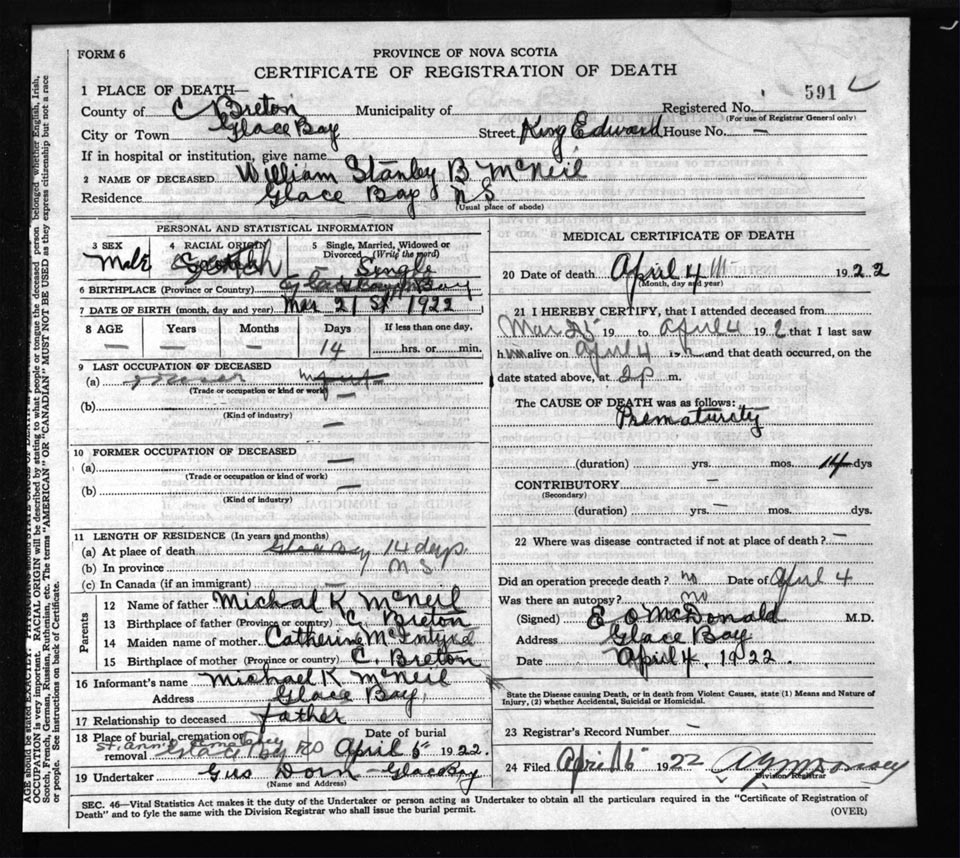 FORM 6
PROVINCE OF NOVA SCOTIA
CERTIFICATE OF REGISTRATION OF DEATH
591
1 PLACE OF DEATH—
County of C Breton Municipality of Registered No.
(For use of Registrar General only)
City or Town Glace Bay Street King Edward House No. —
If in hospital or institution, give name
2 NAME OF DECEASED William Stanley B McNeil
Residence Glace Bay N S
(Usual place of abode)
PERSONAL AND STATISTICAL INFORMATION
3 SEX 4 RACIAL ORIGIN 5 Single, Married, Widowed or Divorced (Write the word)
Male Scotch Single
6 BIRTHPLACE (Province or Country) Glace Bay
7 DATE OF BIRTH (month, day and year) Mar 21 St 1922
8 AGE Years Months Days If less than one day,
— — — 14 hrs. or min.
9 LAST OCCUPATION OF DECEASED
(a) Infant
(Trade or occupation or kind of work)
(b) —
(Kind of industry)
—
10 FORMER OCCUPATION OF DECEASED
(a) —
(Trade or occupation or kind of work)
(b) —
(Kind of industry)
11 LENGTH OF RESIDENCE (In years and months)
(a) At place of death Glace Bay 14 days
(b) In province N S
(c) In Canada (if an immigrant) —
Parents
12 Name of father Michal K McNeil
13 Birthplace of father (Province or country) C. Breton
14 Maiden name of mother Catherine McIntyre
15 Birthplace of mother (Province or country) C. Breton
16 Informant's name Michael K McNeil
Address Glace Bay
17 Relationship to deceased father
18 Place of burial, cremation or removal Date of burial
St. Ann's April 1922.
19 Undertaker Gus Dorn – Glace Bay
(Name and Address)
MEDICAL CERTIFICATE OF DEATH
20 Date of death April 4 1922
(Month, day and year)
21 I HEREBY CERTIFY, that I attended deceased from
Mar 25 19 to April 4 192 that I last saw
him alive on April 4 19 and that death occurred, on
date stated above, at 2 p m.
The CAUSE OF DEATH was as follows:
Prematurity
(duration) yrs. mos. 14 dys
CONTRIBUTORY —
(Secondary)
(duration) yrs. — mos. dys.
22 Where was disease contracted if not at place of death? —
Did an operation precede death? no Date of April 4
Was there an autopsy? no
(Signed) E O McDonald M.D.
Address Glace Bay
Date April 4, 1922.
State the Disease causing Death, or in death from Violent Causes, state (1) Means and Nature of
Injury, (2) whether Accidental, Suicidal or Homicidal.
23 Registrar's Record Number —
24 Filed April 6 1922
Division Registrar
SEC. 46—Vital Statistics Act makes it the duty of the Undertaker or person acting as Undertaker to obtain all the particulars required in the "Certificate of Registration of
Death" and to fyle the same with the Division Registrar who shall issue the burial permit. (OVER)
AGE should be stated EXACTLY.
OCCUPATION is very important. RACIAL ORIGIN will be described by stating to what people or tongue the deceased person belonged whether English, Irish,
Scotch, French, German, Russian, Ruthenian, etc. The terms "AMERICAN" OR "CANADIAN" MUST NOT BE USED as they express citizenship but not a race
or people. See instructions on back of Certificate.